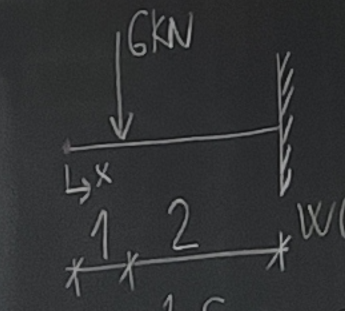 6KN
x
1 2